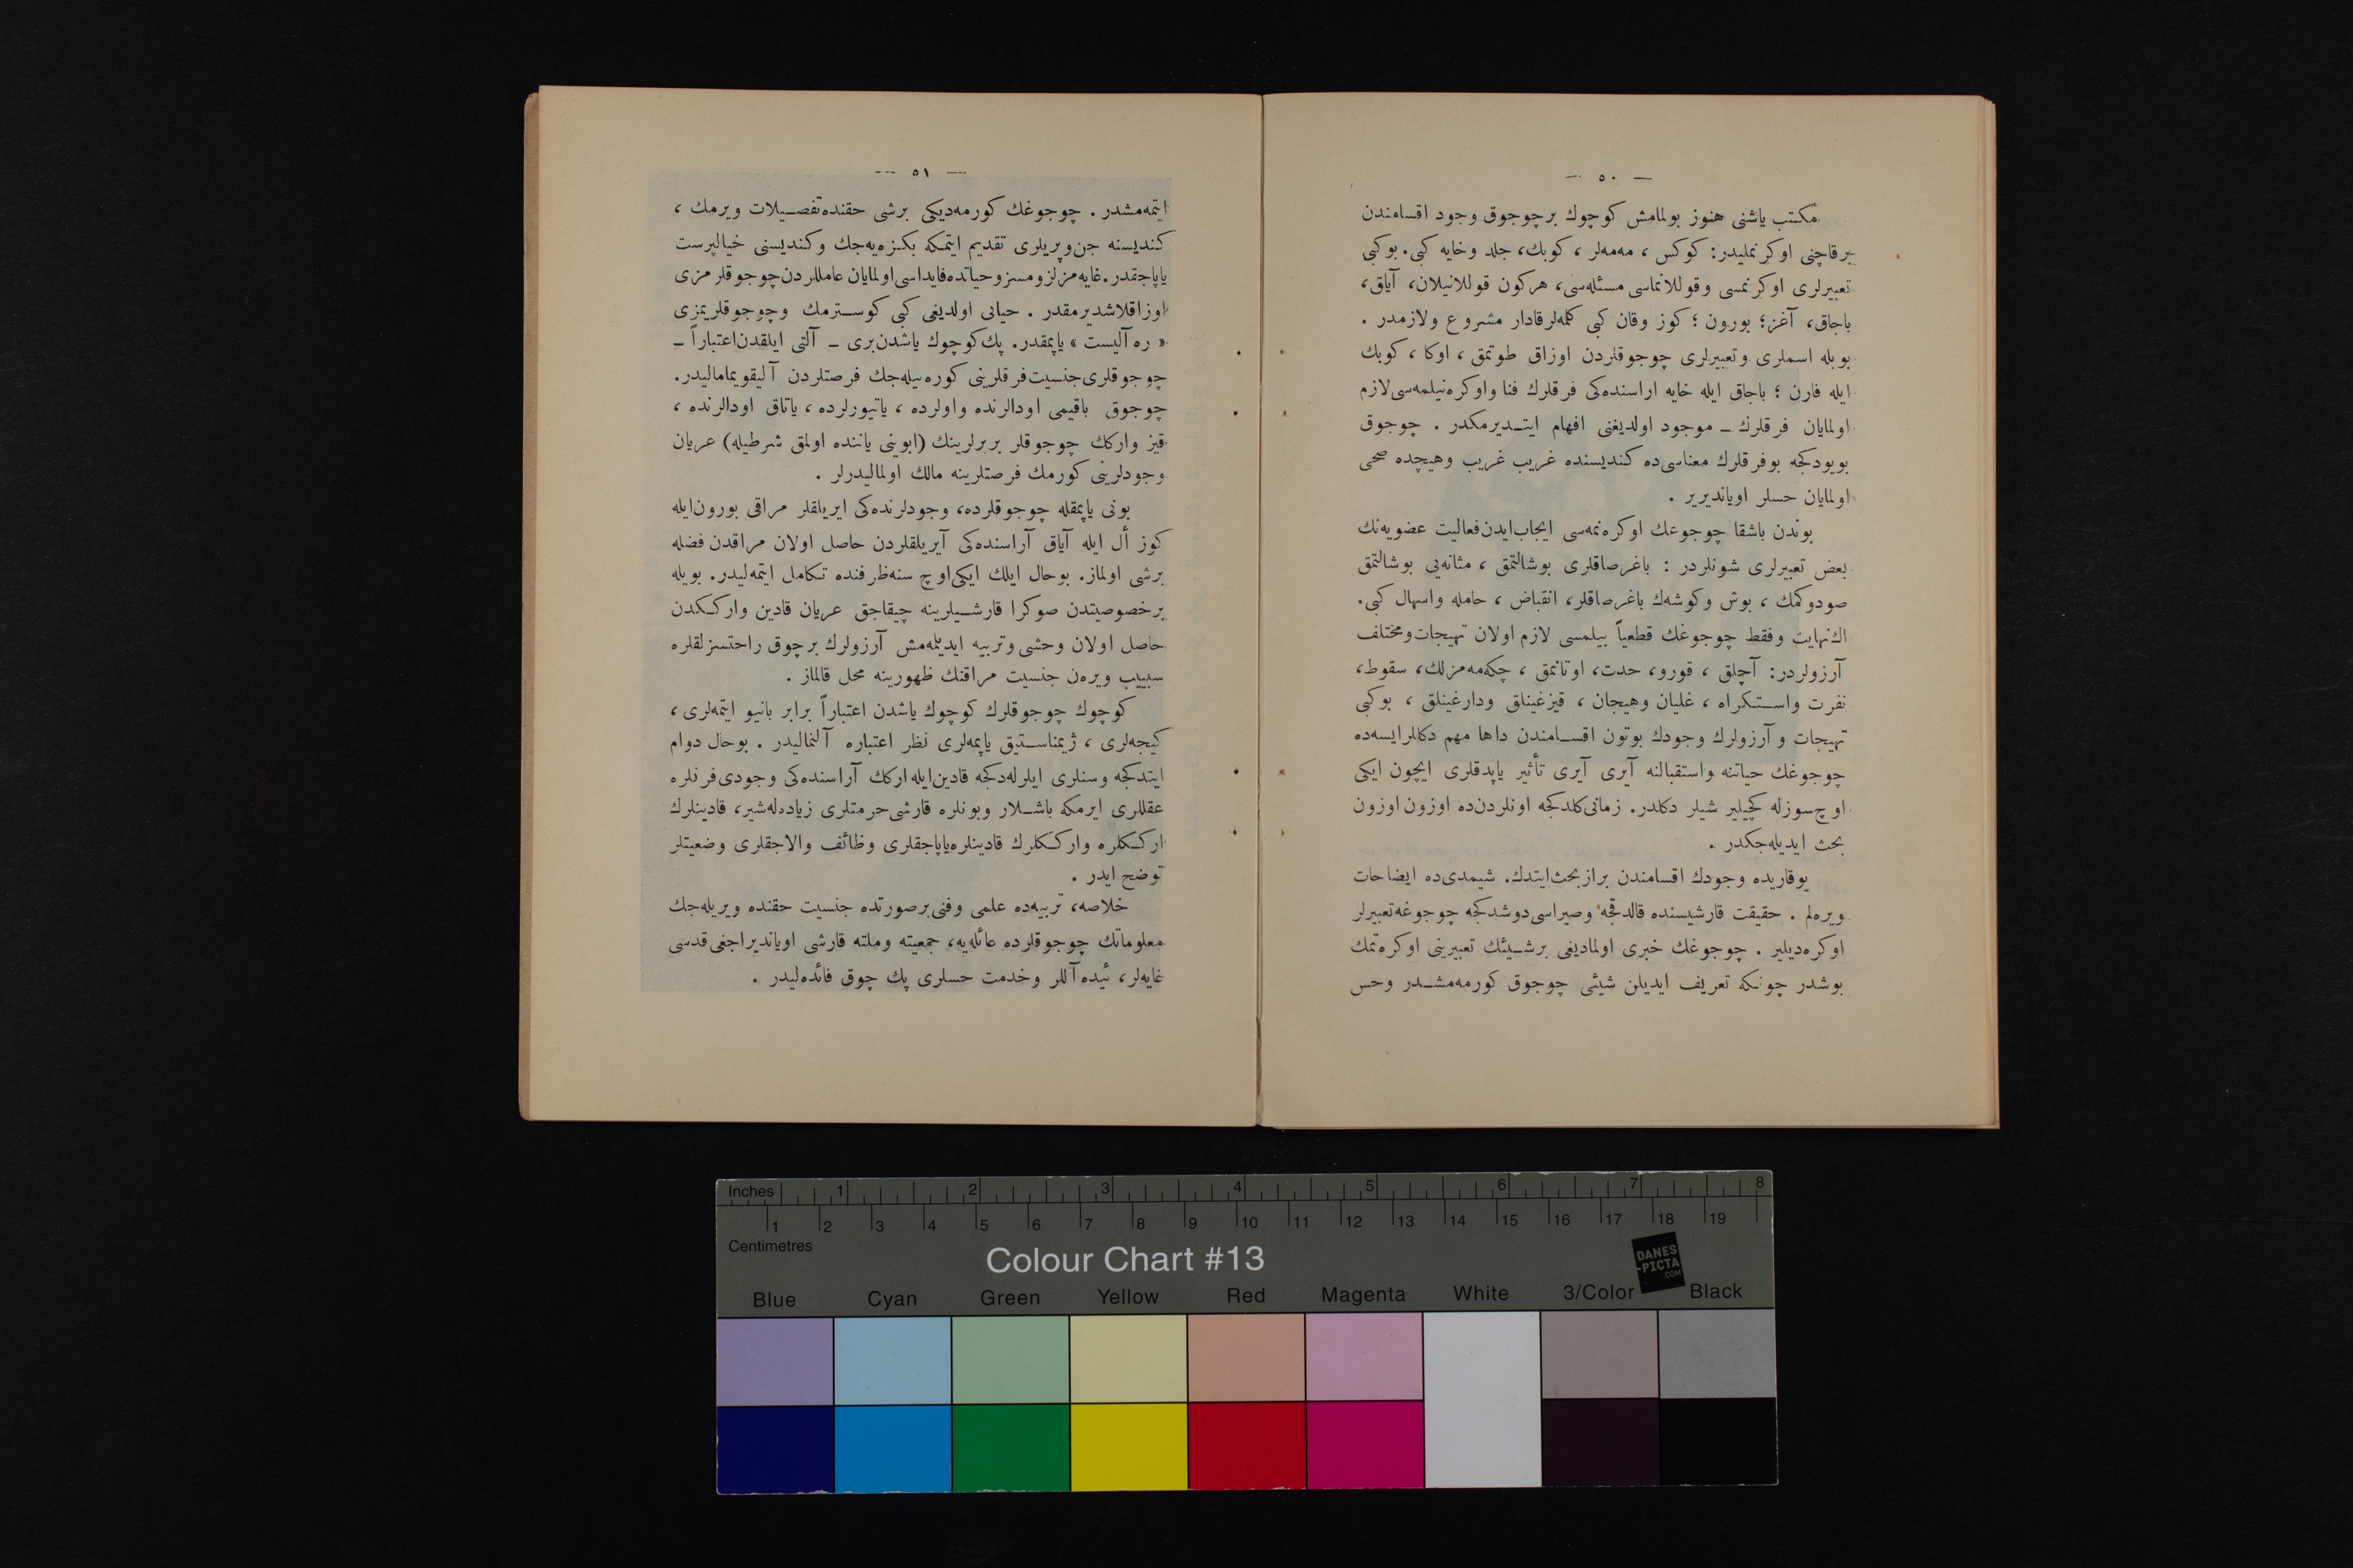 — ٥٠ —
مكتب ياشنى هنوز بولمامش كوچوك برچوجوق وجود اقسامندن
برقاچنى اوكرنمليدر: كوكس ، مه‌مه‌لر ، كوبك، جلد وخايه كبى. بوكبى
تعبيرلرى اوكرنمسى وقوللانماسى مسئله‌سى، هركون قوللانيلان، آياق،
باجاق، آغز؛ بورون ؛ كوز وقان كبى كلمه‌لرقادار مشروع ولازمدر .
بويله اسملرى وتعبيرلرى چوجوقلردن اوزاق طوتمق ، اوكا ، كوبك
ايله قارن ؛ باجاق ايله خايه اراسنده‌كى فرقلرك فنا واوكره‌نيلمه‌سى لازم
اولمايان فرقلرك ــ موجود اولديغنى افهام ايتـديرمكدر . چوجوق
بويودكجه بوفرقلرك معناسى‌ده كنديسنده غريب غريب وهيچده صحى
اولمايان حسلر اوياندیرير .
بوندن باشقا چوجوعك اوكره‌نمه‌سى ايجاب‌ايدن‌فعاليت عضويه‌نك
بعض تعبيرلرى شونلردر : باغرصاقلرى بوشالتمق ، مثانه‌يى بوشالتمق
صودوكمك ، بوش وكوشه‌ك باغرصاقلر، انقباض ، حامله واسهال كبى.
اك‌نهايت وفقط چوجوغك قطعياً بيلمسى لازم اولان تهيجات‌ومختلف
آرزولردر: آچلق ، قورو، حدت، اوتانمق ، چكه‌مه‌مزلك، سقوط،
نفرت واسـتـكراه ، غليان وهيجان ، قيزغينلق ودارغينلق ، بوكبى
تهيجات و آرزولرك وجودك بوتون اقسـامندن داها مهم دكللرايسه‌ده
چوجوغك حياتنه واستقبالنه آيرى آيرى تأثير ياپدقلرى ايچون ايكى
اوچ‌سوزله كچيلير شيلر دكلدر. زمانى‌كلدكجه اونلردن‌ده اوزون اوزون
بحث ايديله‌جكدر .
يوقاريده وجودك اقسامندن برازبحث‌ايتدك. شيمدى‌ده ايضاحات
ويره‌لم . حقيقت قارشيسنده قالدقجه وصيراسى‌دوشدكجه چوجوغه‌تعبيرلر
اوكره‌ديلير . چوجوغك خبرى اولماديغى برشـيئك تعبيرينى اوكره‌تمك
بوشدر چونكه تعريف ايديلن شيئى چوجوق كورمه‌مشـدر وحس
— ٥١ —
ايتمه‌مشدر . چوجوغك كورمه‌ديكى برشى حقنده‌تفصـيلات ويرمك ،
كنديسنه جن‌وپريلرى تقديم ايتمكه بكزه‌يه‌جك وكنديسنى خيالپرست
ياپاجقدر.غايه‌مزلزومسزوحياتده‌فايداسى‌اولمايان عامللردن‌چوجوقلرمزى
اوزاقلاشديرمقدر . حياتى اولديغى كبى كوسـترمك وچوجوقلريمزى
« ره‌آليست » ياپمقدر. پك‌كوچوك ياشدن‌برى ــ آلتى ايلقدن‌اعتباراً ــ
چوجوقلرى‌جنسيت‌فرقلرينى كوره‌بيله‌جك فرصتلردن آليقويماماليدر.
چوجوق باقيمى اودالرنده واولرده ، ياتيورلرده ، ياتاق اودالرنده ،
قيز واركك چوجوقلر بربرلرينك (ابوينى ياننده اولمق شرطيله) عريان
وجودلرينى كورمك فرصتلرينه مالك اولماليدرلر .
بونى ياپمقله چوجوقلرده، وجودلرنده‌كى ايريلقلر مراقى بورون‌ايله
كوز أل ايله آياق آراسنده‌كى آيريلقلردن حاصل اولان مراقدن فضله
برشى اولماز. بوحال ايلك ايكى‌اوچ سنه‌ظرفنده تكامل ايتمه‌ليدر. بويله
برخصوصيتدن صوكرا قارشـيلرينه چيقاجق عريان قادين واركـكدن
حاصل اولان وحشى وتربيه ايديلمه‌مش آرزولرك برچوق راحتسزلقلره
سبيب ويره‌ن جنسيت مراقنك ظهورينه محل قالماز .
كوچوك چوجوقلرك كوچوك ياشدن اعتباراً برابر بانيو ايتمه‌لرى ،
كيجه‌لرى ، ژيمناسـتيق ياپمه‌لرى نظر اعتباره آلنماليدر . بوحال دوام
ايتدكجه وسنلرى ايلرله‌دكجه قادين‌ايله‌اركك آراسنده‌كى وجودى‌فرقلره
عقللرى ايرمكه باشـلار وبونلره قارشى‌حرمتلرى زياده‌له‌شير، قادينلرك
اركـكلره واركـكلرك قادينلره‌ياپاجقلرى وظائف والاجقلرى وضعيتلر
توضح ايدر .
خلاصه، تربيه‌ده علمى وفنى‌برصورتده جنسيت حقنده ويريله‌جك
معلوماتك چوجوقلرده عائله‌يه، جمعيته وملته قارشى اوياندیراجغى‌قدسى
غايه‌لر، ئيده‌آللر وخدمت حسلرى پك چوق فائده‌ليدر .
Inches 1 2 3 4 5 6 7 8
1 2 3 4 5 6 7 8 9 10 11 12 13 14 15 16 17 18 19
Centimetres
Colour Chart #13
DANES
-PICTA
.COM
Blue Cyan Green Yellow Red Magenta White 3/Color Black